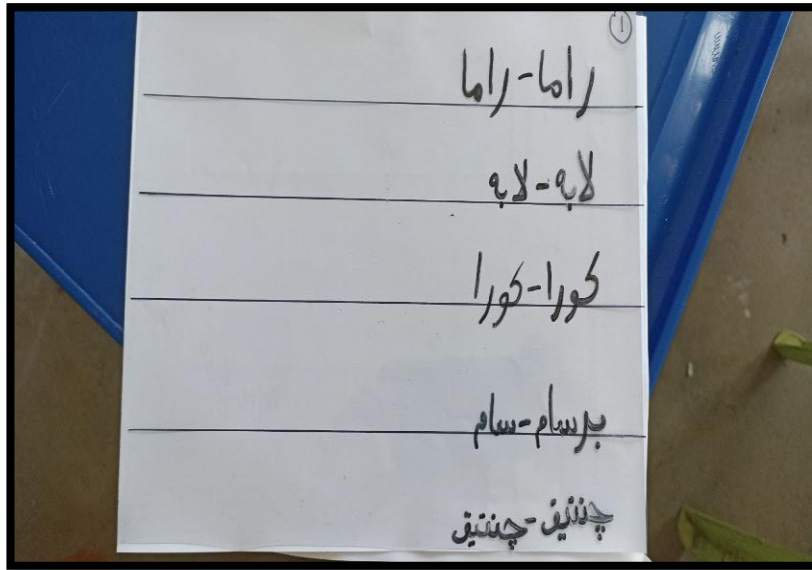 1
راما-راما
لابه-لابه
کورا-کورا
برسام-سام
چنتيق-چنتيق